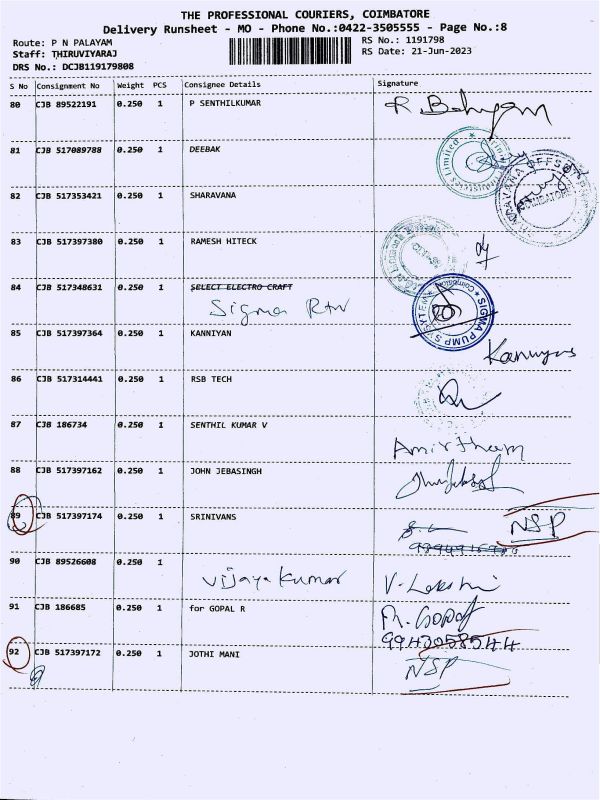 THE PROFESSIONAL COURIERS, COIMBATORE
Delivery Runsheet - MO - Phone No.:0422-3505555 - Page No.:8
Route: P N PALAYAM
Staff: THIRUVIYARAJ
DRS No.: DCJB119179808
RS No.: 1191798
RS Date: 21-Jun-2023
S No Consignment No Weight PCS Consignee Details Signature
80 CJB 89522191 0.250 1 P SENTHILKUMAR
81 CJB 517089788 0.250 1 DEEBAK
82 CJB 517353421 0.250 1 SHARAVANA
83 CJB 517397380 0.250 1 RAMESH HITECK
84 CJB 517348631 0.250 1 SELECT ELECTRO CRAFT
Sigma
SIGMA PUMP SYSTEM
85 CJB 517397364 0.250 1 KANNIYAN
86 CJB 517314441 0.250 1 RSB TECH
87 CJB 186734 0.250 1 SENTHIL KUMAR V
Amirtham
88 CJB 517397162 0.250 1 JOHN JEBASINGH
89 CJB 517397174 0.250 1 SRINIVANS
NSP
90 CJB 89526608 0.250 1
Vijaya Kumar V. Lakshmi
91 CJB 186685 0.250 1 for GOPAL R
9943058544
92 CJB 517397172 0.250 1 JOTHI MANI
NSP